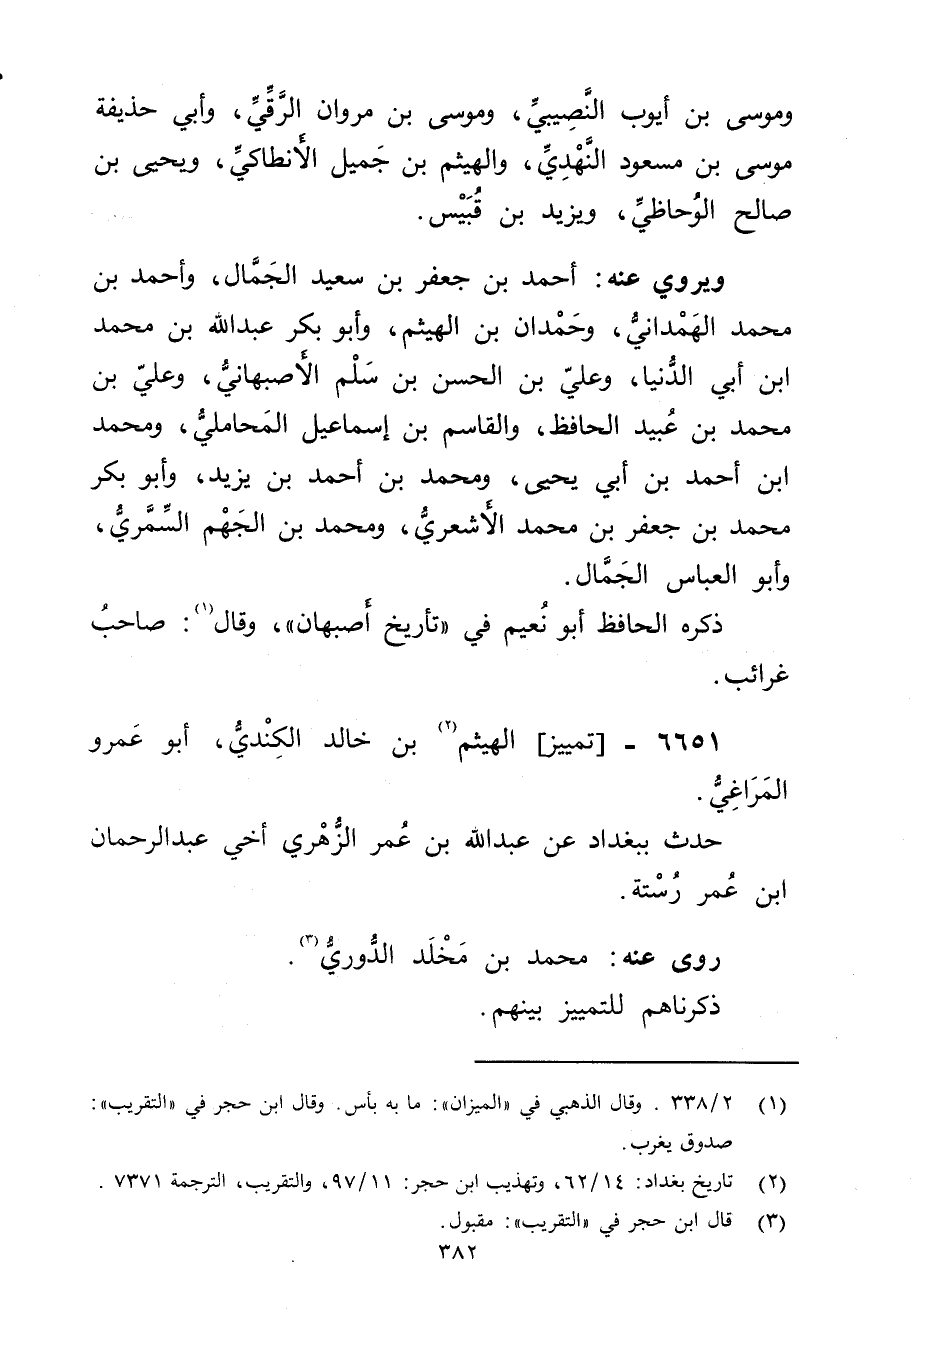 وموسى بن أيوب النَّصِيبيِّ، وموسى بن مروان الرَّقِّيِّ، وأبي حذيفة
موسى بن مسعود النَّهْدِيِّ، والهيثم بن جَميل الأَنطاكيِّ، ويحيى بن
صالح الوُحاظيِّ، ويزيد بن قُبَيْس.
ويروي عنه: أحمد بن جعفر بن سعيد الجَمَّال، وأحمد بن
محمد الهَمْدانيُّ، وحَمْدان بن الهيثم، وأبو بكر عبدالله بن محمد
ابن أبي الدُّنيا، وعليّ بن الحسن بن سَلْم الأَصبهانيُّ، وعليّ بن
محمد بن عُبيد الحافظ، والقاسم بن إسماعيل المَحامليُّ، ومحمد
ابن أحمد بن أبي يحيى، ومحمد بن أحمد بن يزيد، وأبو بكر
محمد بن جعفر بن محمد الأَشعريُّ، ومحمد بن الجَهْم السِّمَّريُّ،
وأبو العباس الجَمَّال.
ذكره الحافظ أبو نُعيم في «تأريخ أَصبهان»، وقال(١): صاحبُ
غرائب.
٦٦٥١ - [تمييز] الهيثم(٢) بن خالد الكِنْديُّ، أبو عَمرو
المَرَاغِيُّ.
حدث ببغداد عن عبدالله بن عُمر الزُّهْري أخي عبدالرحمان
ابن عُمر رُسْتة.
روى عنه: محمد بن مَخْلَد الدُّوريُّ(٣).
ذكرناهم للتمييز بينهم.
(١) ٣٣٨/٢ . وقال الذهبي في «الميزان»: ما به بأس. وقال ابن حجر في «التقريب»:
صدوق يغرب.
(٢) تاريخ بغداد: ٦٢/١٤، وتهذيب ابن حجر: ٩٧/١١، والتقريب، الترجمة ٧٣٧١ .
(٣) قال ابن حجر في «التقريب»: مقبول.
٣٨٢